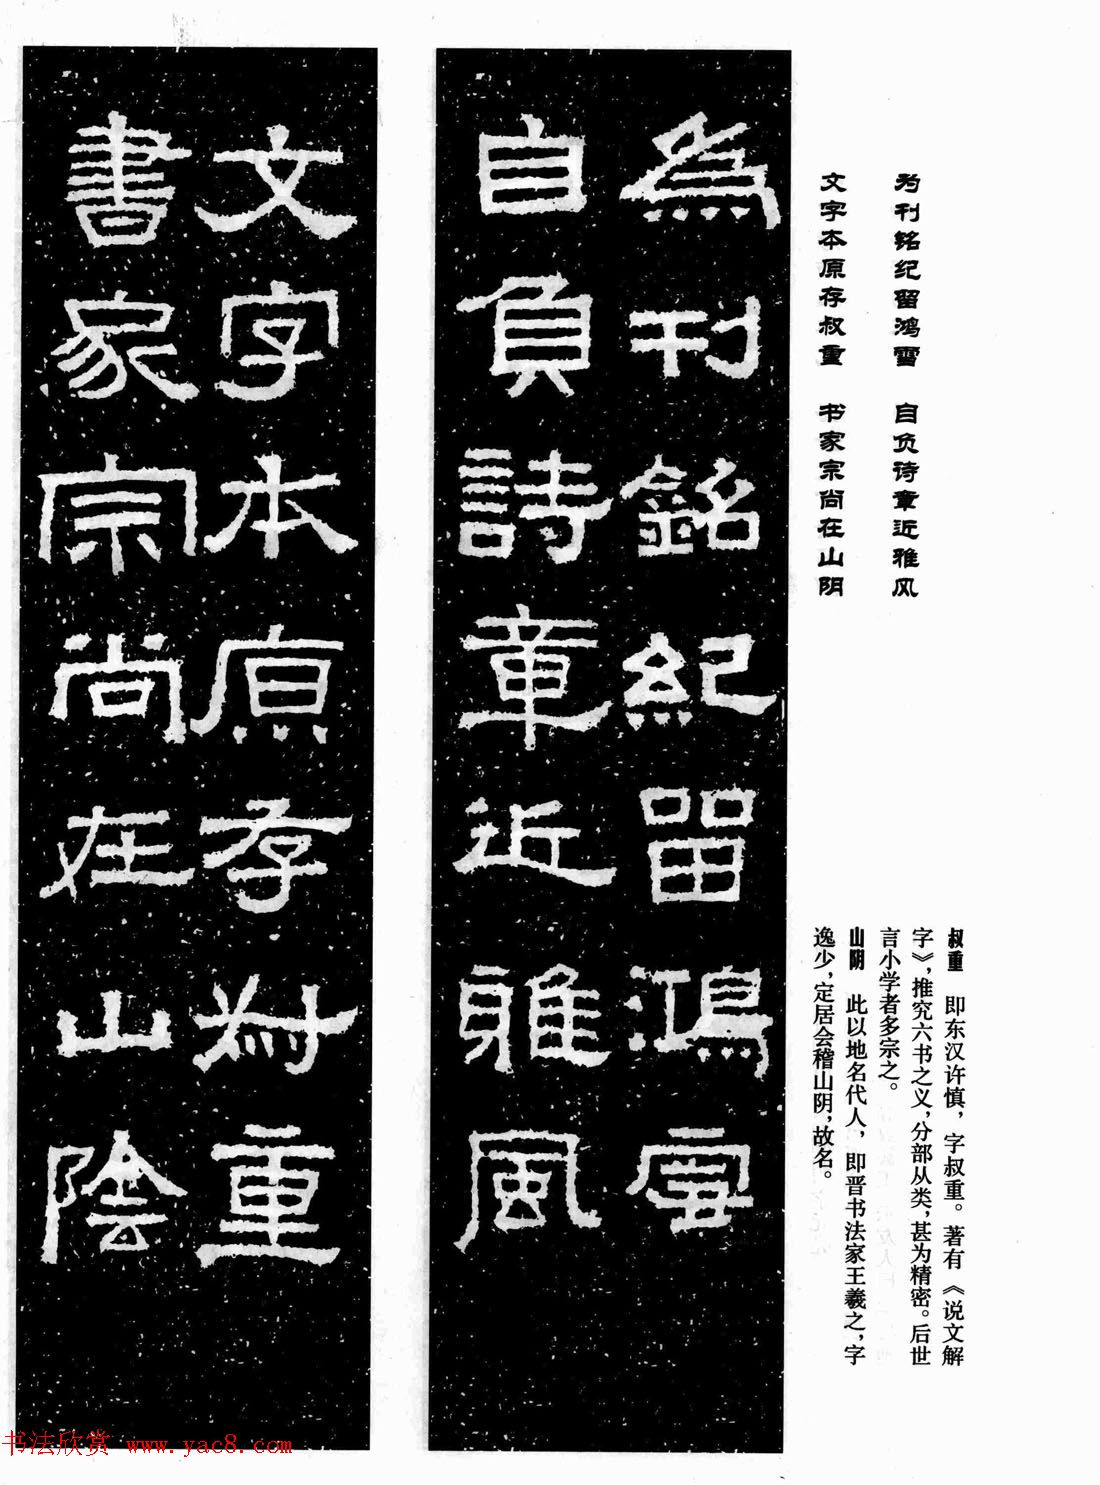 为刊铭纪留鸿雪 自负诗章近雅风
文字本原存叔重 书家宗尚在山阴
為刊銘紀留鴻雪
自負詩章近雅風
文字本原存叔重
書家宗尚在山陰
叔重 即东汉许慎，字叔重。著有《说文解
字》，推究六书之义，分部从类，甚为精密。后世
言小学者多宗之。
山阴 此以地名代人，即晋书法家王羲之，字
逸少，定居会稽山阴，故名。
书法欣赏 www.yac8.com